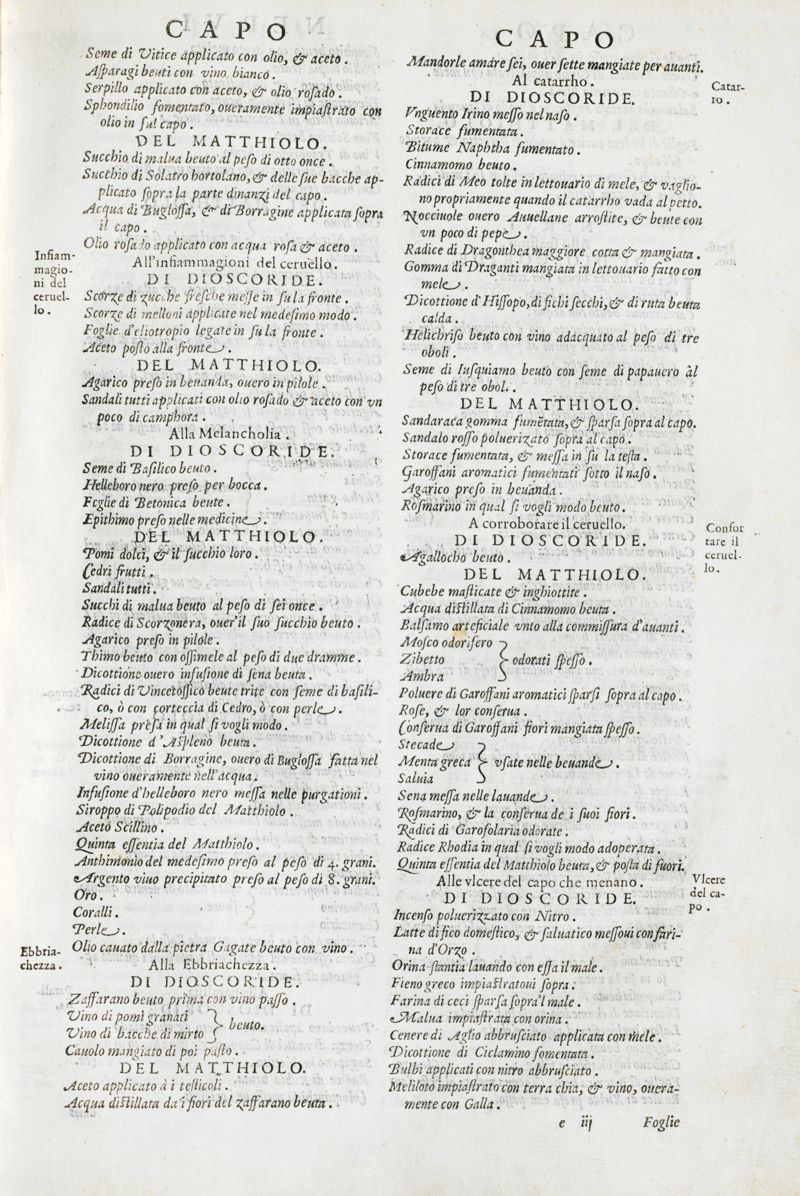 CAPO
Seme di Vitice applicato con olio, & aceto.
Asparagi beuti con vino bianco.
Serpillo applicato con aceto, & olio rosado.
Sphondilio fomentato, oueramente impiastrato con
olio in sul capo.
DEL MATTHIOLO.
Succhio di malua beuto al peso di otto once.
Succhio di Solatro hortolano, & delle sue bacche ap-
plicato sopra la parte dinanzi del capo.
Acqua di Buglossa, & di Borragine applicata sopra
il capo.
Olio rosado applicato con acqua rosa & aceto.
Infiam-
magio-
ni del
ceruel-
lo.
All'infiammagioni del ceruello.
DI DIOSCORIDE.
Scorze di zucche fresche messe in su la fronte.
Scorze di melloni applicate nel medesimo modo.
Foglie d'eliotropio legate in su la fronte.
Aceto posto alla fronte.
DEL MATTHIOLO.
Agarico preso in beuanda, ouero in pilole.
Sandali tutti applicati con olio rosado & aceto con vn
poco di camphora.
Alla Melancholia.
DI DIOSCORIDE.
Seme di Basilico beuto.
Helleboro nero preso per bocca.
Foglie di Betonica beute.
Epithimo preso nelle medicine.
DEL MATTHIOLO.
Pomi dolci, & il succhio loro.
Cedri frutti.
Sandali tutti.
Succhi di malua beuto al peso di sei once.
Radice di Scorzonera, ouer'il suo succhio beuto.
Agarico preso in pilole.
Thimo beuto con ossimele al peso di due dramme.
Dicottione ouero infusione di sena beuta.
Radici di Vincetossico beute trite con seme di basili-
co, ò con corteccia di Cedro, ò con perle.
Melissa presa in qual si vogli modo.
Dicottione d'Aspleno beuta.
Dicottione di Borragine, ouero di Buglossa fatta nel
vino oueramente nell'acqua.
Infusione d'helleboro nero messa nelle purgationi.
Siroppo di Polipodio del Matthiolo.
Aceto Scillino.
Quinta essentia del Matthiolo.
Anthimonio del medesimo preso al peso di 4. grani.
Argento viuo precipitato preso al peso di 8. grani.
Oro.
Coralli.
Perle.
Olio cauato dalla pietra Gagate beuto con vino.
Ebbria-
chezza.
Alla Ebbriachezza.
DI DIOSCORIDE.
Zaffarano beuto prima con vino passo.
Vino di pomi granati
Vino di bacche di mirto
beuto.
Cauolo mangiato di poi pasto.
DEL MATTHIOLO.
Aceto applicato à i testicoli.
Acqua distillata da i fiori del zaffarano beuta.
CAPO
Mandorle amare sei, ouer sette mangiate per auanti.
Catar-
ro.
Al catarrho.
DI DIOSCORIDE.
Vnguento Irino messo nel naso.
Storace fumentata.
Bitume Naphtha fumentato.
Cinnamomo beuto.
Radici di Meo tolte in lettouario di mele, & vaglio-
no propriamente quando il catarrho vada al petto.
Nocciuole ouero Auuellane arrostite, & beute con
vn poco di pepe.
Radice di Dragonthea maggiore cotta & mangiata.
Gomma di Draganti mangiata in lettouario fatto con
mele.
Dicottione d'Hissopo, di fichi secchi, & di ruta beuta
calda.
Helichriso beuto con vino adacquato al peso di tre
oboli.
Seme di Iusquiamo beuto con seme di papauero al
peso di tre oboli.
DEL MATTHIOLO.
Sandaraca gomma fumētata, & sparsa sopra al capo.
Sandalo rosso poluerizato sopra al capo.
Storace fumentata, & messa in su la testa.
Garoffani aromatici fumentati sotto il naso.
Agarico preso in beuanda.
Rosmarino in qual si vogli modo beuto.
Confor
tare il
ceruel-
lo.
A corroborare il ceruello.
DI DIOSCORIDE.
Agallocho beuto.
DEL MATTHIOLO.
Cubebe masticate & inghiottite.
Acqua distillata di Cinnamomo beuta.
Balsamo arteficiale vnto alla commissura d'auanti.
Mosco odorifero
Zibetto
Ambra
odorati spesso.
Poluere di Garoffani aromatici sparsi sopra al capo.
Rose, & lor conserua.
Conserua di Garoffani fiori mangiata spesso.
Stecade
Menta greca
Saluia
vsate nelle beuande.
Sena messa nelle lauande.
Rosmarino, & la conserua de i suoi fiori.
Radici di Garofolaria odorate.
Radice Rhodia in qual si vogli modo adoperata.
Quinta essentia del Matthiolo beuta, & posta di fuori.
Vlcere
del ca-
po.
Alle vlcere del capo che menano.
DI DIOSCORIDE.
Incenso poluerizzato con Nitro.
Latte di fico domestico, & saluatico messoui con fari-
na d'Orzo.
Orina stantia lauando con essa il male.
Fieno greco impiastratoui sopra.
Farina di ceci sparsa sopra'l male.
Malua impiastrata con orina.
Cenere di Aglio abbrusciato applicata con mele.
Dicottione di Ciclamino fomentata.
Bulbi applicati con nitro abbrusciato.
Meliloto impiastrato con terra chia, & vino, ouera-
mente con Galla.
e iij
Foglie